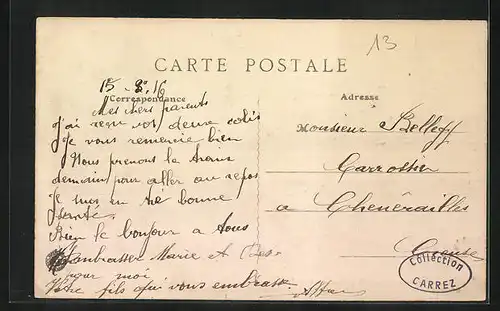 13
CARTE POSTALE
15 - 8 - 16
Correspondance
Adresse
Mes chers parents
J'ai reçu vos deux colis
Je vous remercie bien
Nous prenons le train
demain pour aller au repos
Je suis en bonne
santé
Bien le bonjour a tous
Embrasser Marie et
pour moi
Votre fils qui vous embrasse
Monsieur
Carrossier
a Chénérailles
Creuse
Collection
CARREZ